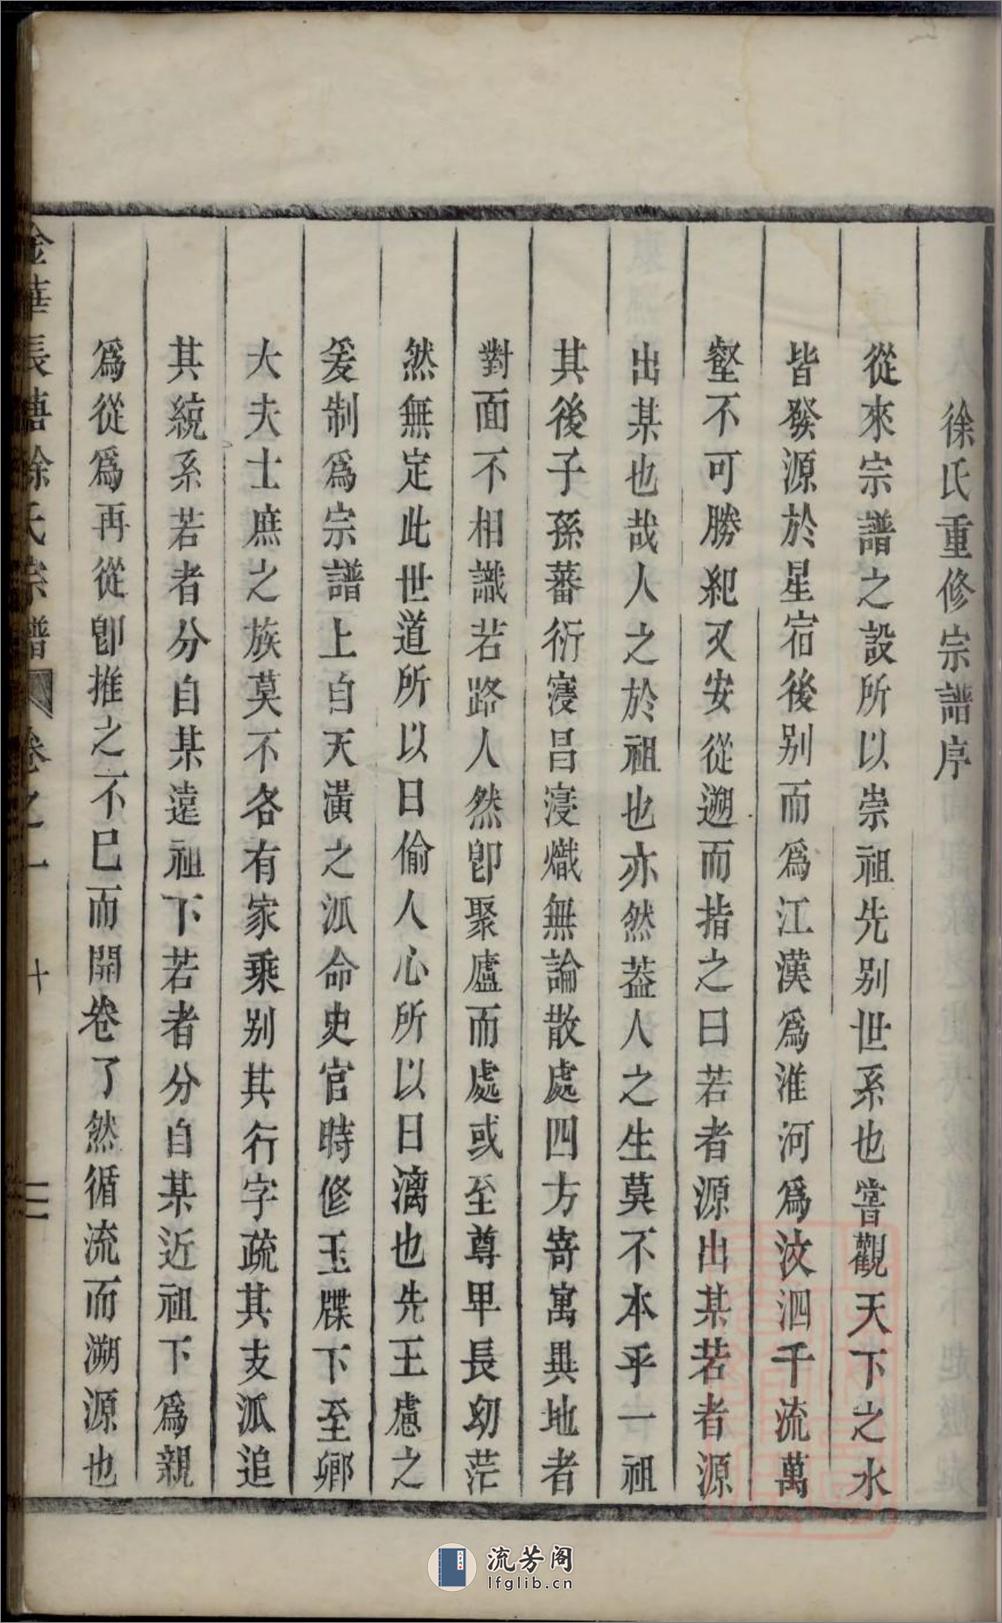 徐氏重修宗譜序
從來宗譜之設所以崇祖先別世系也嘗觀天下之水
皆發源於星宿後別而為江漢為淮河為汶泗千流萬
壑不可勝紀又安從遡而指之曰若者源出某若者源
出某也哉人之於祖也亦然葢人之生莫不本乎一祖
其後子孫蕃衍寖昌寖熾無論散處四方寄寓異地者
對面不相識若路人然卽聚廬而處或至尊卑長幼茫
然無定此世道所以日偷人心所以日漓也先王慮之
爰制爲宗譜上自天潢之派命史官時修玉牒下至卿
大夫士庶之族莫不各有家乘別其行字疏其支派追
其統系若者分自某遠祖下若者分自某近祖下爲親
爲從爲再從卽推之不已而開卷了然循流而溯源也
金華長塘徐氏宗譜 卷之一 十二
流芳阁
lfglib.cn